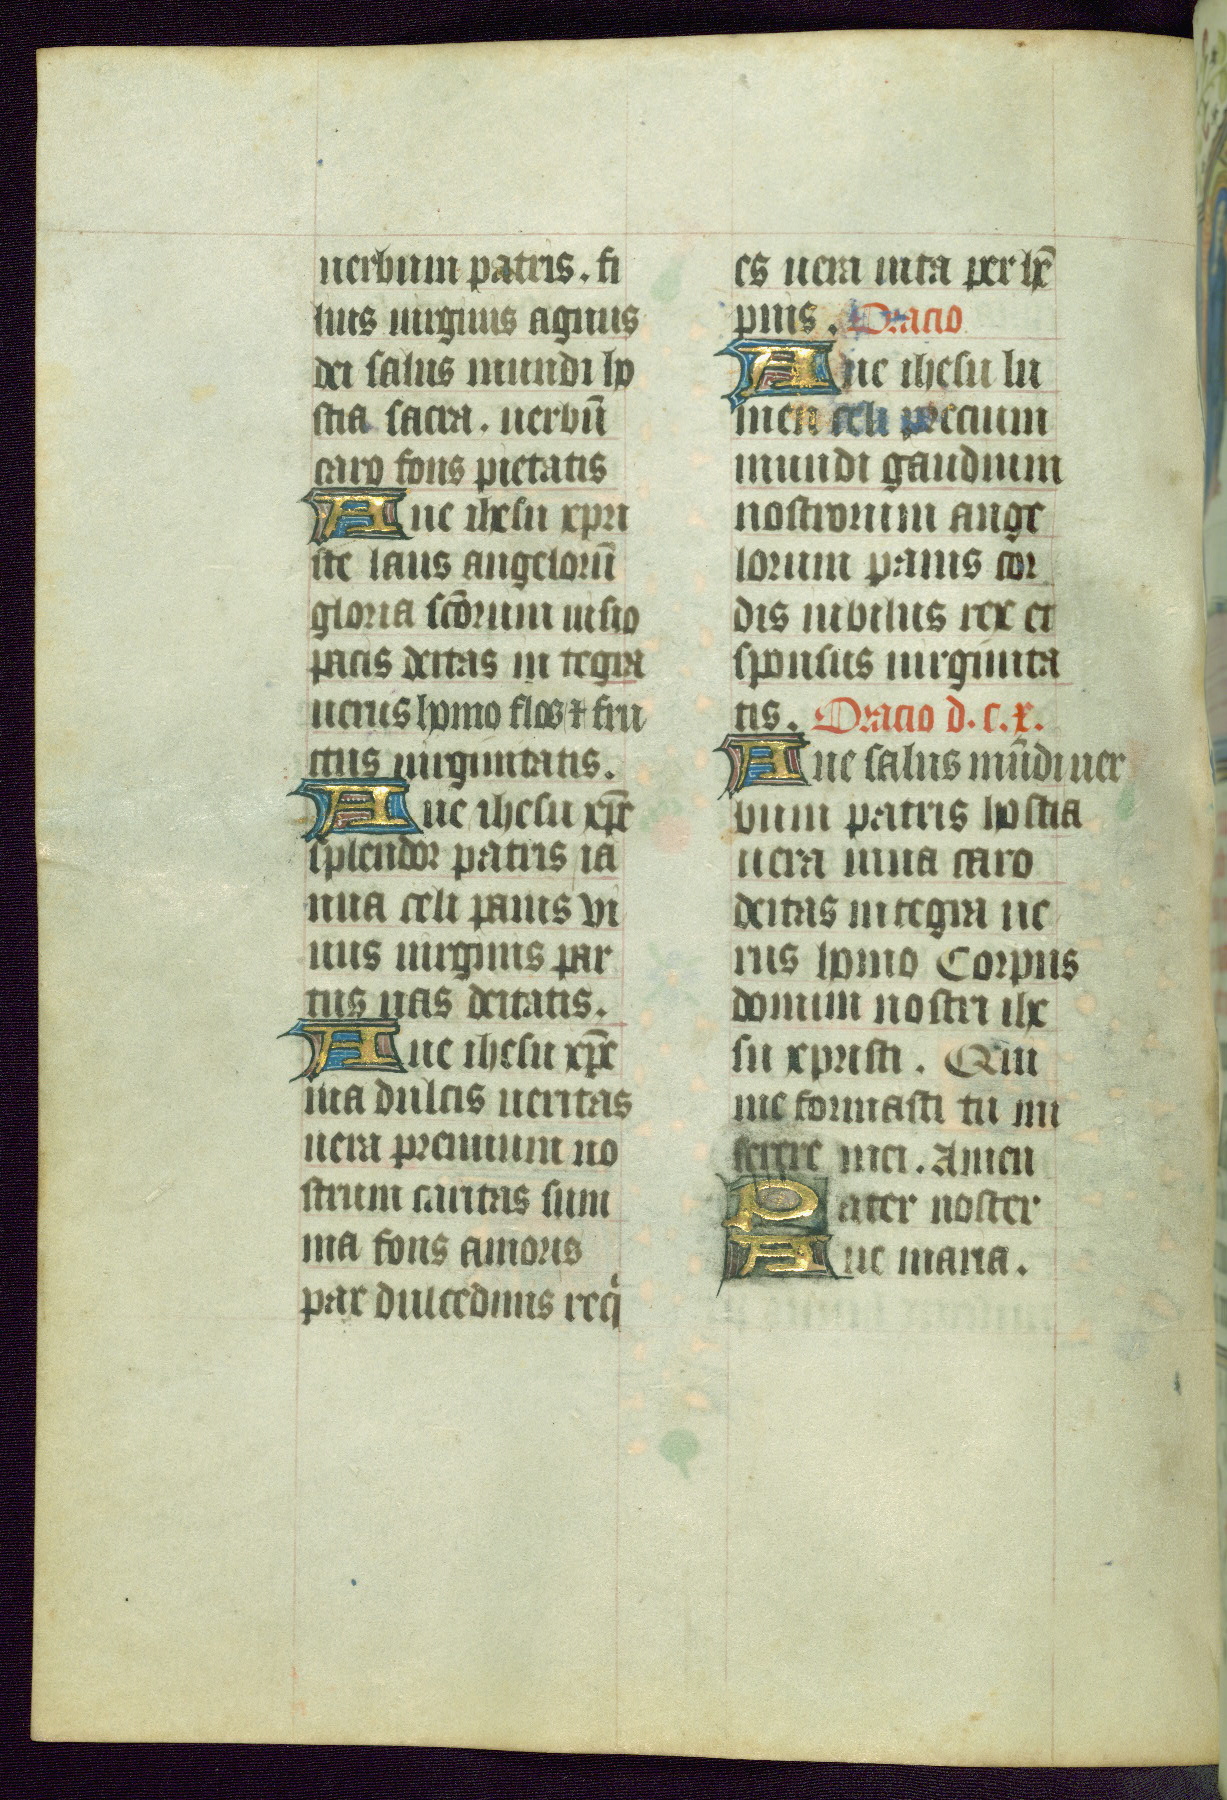 uerbum patris. fi
lius uirginis agnus
dei salus mundi ho
stia sacra. uerbū
caro fons pietatis
Aue ihesu xpri
ste laus angelorū
gloria sc̄orum uisio
pacis deitas in tegra
uerus homo flos & fru
ctus uirginitatis.
Aue ihesu xp̄e
splendor patris ia
nua celi panis vi
uus uirginis par
tus uas deitatis.
Aue ihesu xp̄e
uia dulcis ueritas
uera premium no
strum caritas sum
ma fons amoris
pax dulcedinis req̇
es uera uita per hē
pnis. Oracio
Aue ihesu lu
men celi precium
mundi gaudium
nostrorum ange
lorum panis cor
dis iubilus rex et
sponsus uirginita
tis. Oracio d. c. x.
Aue salus mūdi uer
bum patris hostia
uera uiua caro
deitas in tegra ue
rus homo Corpus
domini nostri ihe
su xpristi. Qui
me formasti tu mi
serere mei. Amen
Pater noster
Aue maria.